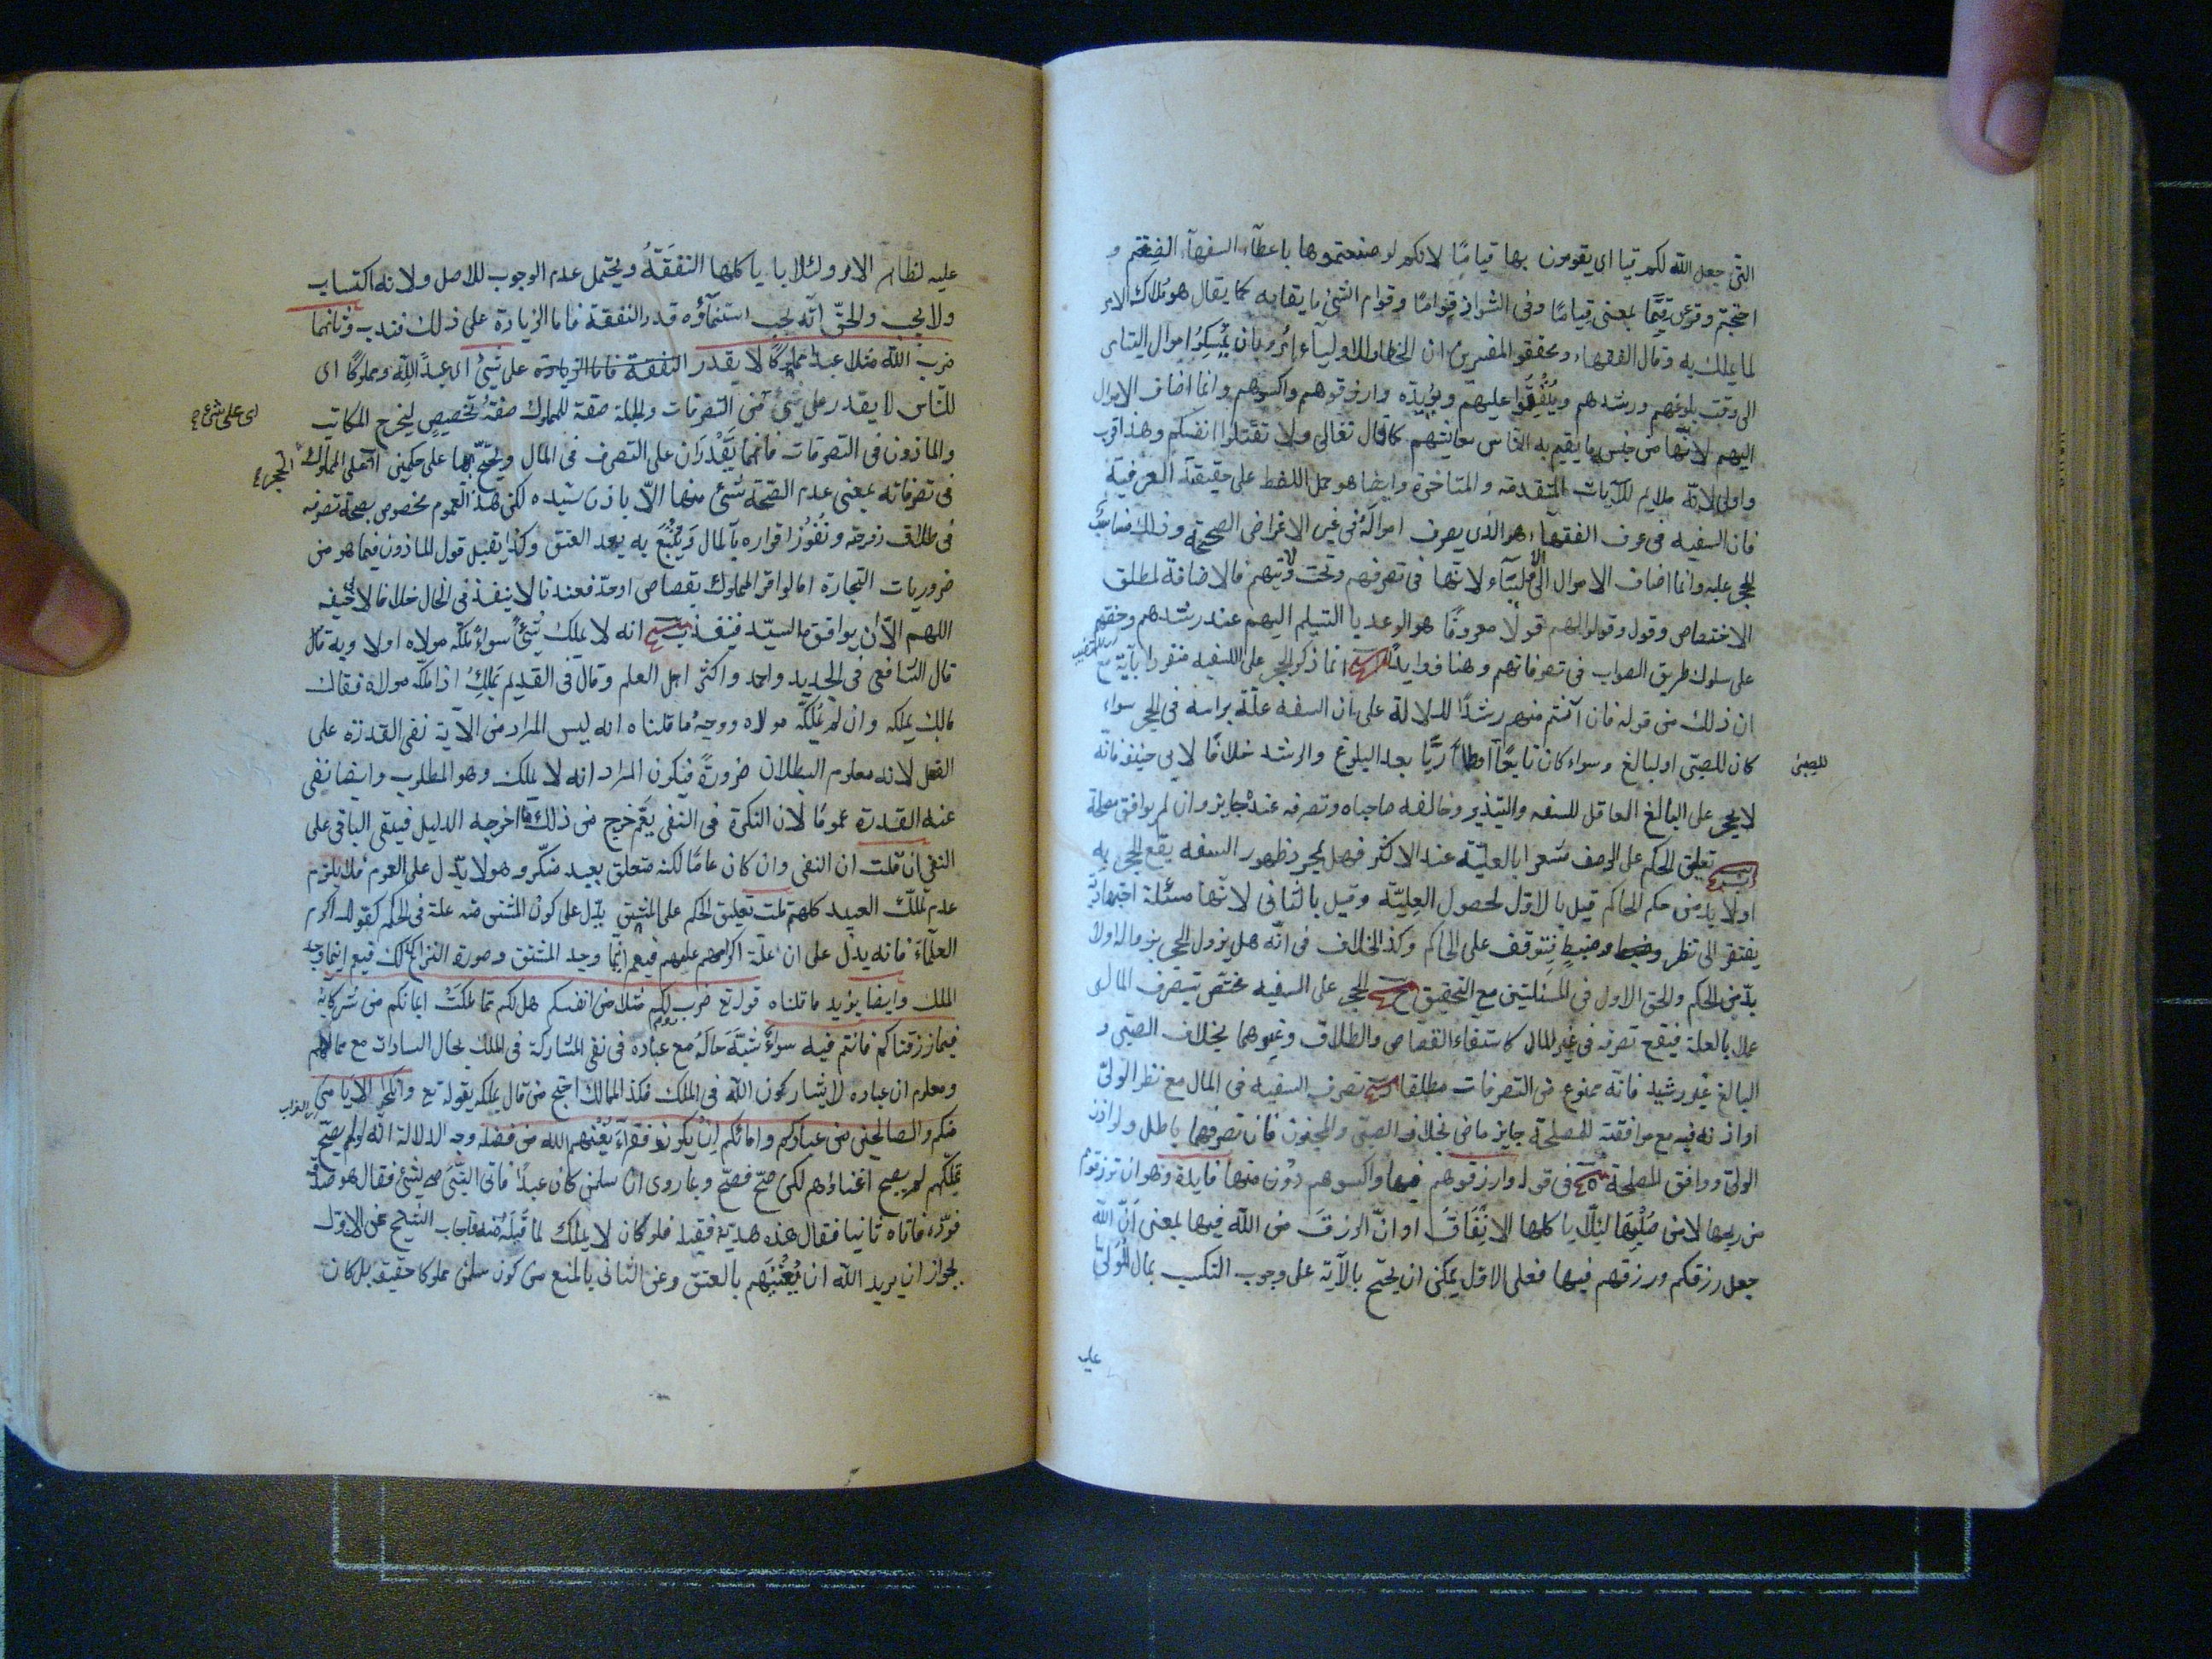 التى جعل الله لكم قيا اى يقومون بها قياما لانكم لو ضيعتموها باعطآء السفهآء الضعتم و
احتجتم وقرئ قِيَمًا بمعنى قِيامًا وفى الشواذ قِوامًا وقوام الشئ ما يقام به كما يقال هو ملاك الامر
لما يملك به وقال الفقهاء ومحققو المفسرين ان الخطاب للاوليآء اُمروا بان يُمسِكوُا اموال اليتامى
الى وقت بلوغهم ورشدهم ويُنْفِقُوا عليهم ويؤيده وارزقوهم واكسوهم وانما اضاف الاموال
اليهم لانها من جنس ما يقيم به الناس معايشهم كما قال تعالى ولا تقتلوا انفسكم وهذا اقرب
واولى لانه ملايم للآيات المتقدمة والمتاخرة وايضا هو حمل اللفظ على حقيقته العرفية
فان السفيه فى عرف الفقهاء هو الذى يصرف امواله فى غير الاغراض الصحيحة وذلك مناسب
للحجر عليه وانما اضاف الاموال الى الاوليآء لانها فى تصرفهم وتحت ولايتهم فالاضافة لمطلق
الاختصاص وقوله وقولوا لهم قولًا معروفًا هو الوعد با التسليم اليهم عند رشدهم وحثهم
على سلوك طريق الصواب فى تصرفاتهم وهنا فوايد انما ذكر الحجر على السفيه منفردا بآية مع
ان ذلك من قوله فان آنستم منهم رشدًا للدلالة على ان السفه علّة براسه فى الحجر سواء
كان للصبى او لبالغ وسواء كان تابعًا او طاريًا بعد البلوغ والرشد خلافًا لابى حنيفة فانه
للصبى
لا يحجر على البالغ العاقل للسفه والتبذير وخالفه صاحباه وتصرفه عنده جايز وان لم يوافق مصلحة
تعليق الحكم على الوصف مشعر بالعليّة عند الاكثر فهل بمجرد ظهور السفه يقع الحجر به
او لا بد من حكم الحاكم قيل بالاول لحصول العِليّة وقيل بالثانى لانها مسئلة اجتهادية
يفتقر الى نظر وضبط فتتوقف على الحاكم وكذا الخلاف فى انه هل يزول الحجر بزواله او لا
بدّ من الحكم والحق الاول فى المسئلتين مع التحقيق الحجر على السفيه مختص بتصرف المالى
عملا بالعلة فيقع تصرفه فى غير المال كاستيفاء القصاص والطلاق وغيرهما بخلاف الصبى و
البالغ غير رشيد فانه ممنوع من التصرفات مطلقا تصرف السفيه فى المال مع نظر الولىّ
او اذنه فيه مع موافقته للمصلحة جايز ماض بخلاف الصبى والمجنون فان تصرفهما باطل ولو اذن
الولى ووافق المصلحة فى قوله وارزقوهم فيها واكسوهم دون منها فايدة وهو ان ترزقوهم
من ربحها لا من صُلْبِها ليلّا ياكلها الانفاق او انّ الرزق من الله فيها بمعنى ان الله
جعل رزقكم ورزقهم فيها فعلى الاول يمكن ان يحتج بالآية على وجوب التكسب بمال المُوَلّى
عليه
عليه لنظام الامر ولئلا يا ياكلها النفقةُ ويحتمل عدم الوجوب للاصل ولانه اكتساب
ولا يجب والحقّ انه يجب استنمآؤه قدر النفقة فاما الزيادة على ذلك فندب
ضرب الله مثلا عبدا مملوكًا لا يقدر النفقة فاما الزيادة على شئ اى عبدًا لله ومملوكًا اى
للناس لا يقدر على شئ من التصرفات والجملة صفة للمملوك صفةُ تخصيصٍ ليخرج المكاتب
اى على شئ
والماذون فى التصرفات فانهما يَقْدِرَان على التصرف فى المال ويحتجّ بها على حكمين المملوك
الحجر
فى تصرفاته بمعنى عدم الصّحة شئ منها الاّ باذن سيده لكن هذا العموم مخصوص بصحة تصرفه
فى طلاق زوجته ونُفُوُذ اقراره بالمال وَيُتْبَع به بعد العتق وكذا يقبل قول الماذون فيما هو من
ضروريات التجارة اما لو اقر المملوك بقصاص او حدّ فعندنا لا ينفذ فى الحال خلافا لابى حنيفه
اللهم الاّ ان يوافقه السيّد فينفذ انه لا يملك شيئًا سواءٌ ملّكه مولاه او لا وبه قال
قال الشافعى فى الجديد واحمد واكثر اهل العلم وقال فى القديم يَملِكُ اذا ملّكه مولاه وقال
مالك يملكه وان لَمْ يُملّكّه مولاه ووجهُ ما قلناه انه ليس المراد من الآية نفى القدرة على
الفعل لانه معلوم البطلان ضرورةً فيكون المراد انه لا يملك وهو المطلوب وايضا نفى
عنه القدرة عمومًا لان النكرة فى النفى يعُم خرج من ذلك ما اخرجه الدليل فيبقى الباقى على
النفى ان قلت ان النفى وان كان عامًا لكنه متعلق بعبد منكّر وهو لا يدل على العموم فلا يلزم
عدم تملّك العبيد كلهم قلت تعليق الحكم على المشتق يدل على كون المشتق منه علة فى الحكم كقولك اكرم
العلمآء فانه يدل على ان علّة اكرامهم علمهم فيعم اينما وجد المشتق وصورة النزاع كذلك فيعم اينما وجد
الملك وايضا يؤيد ما قلناه قوله تع ضرب لكم مثلا من انفسكم هل لكم مما ملكَتْ ايمانكم من شركاءَ
فيما رزقناكم فانتم فيه سواءٌ شَبّهَ حَالَهُ مع عباده فى نفى المشاركة فى الملك بحال السادات مع مماليكهم
ومعلوم ان عباده لا يشاركون الله فى الملك فكذا المماليك احتج من قال بملكه بقوله تع وانكحوا الايامى
منكم والصالحين من عبادكم وامائكم اِنْ يكونوا فقرآءَ يُغنهم الله من فضله وجه الدلالة انه لو لم يصحّ
تملّكهم لم يصح اغناؤهم لكن صحّ فصحّ وبما روى ان سلمن كان عبدًا فاتى النبّىَ ص بشئ فقال هو صدقة
فردّه فاتاه ثانيا فقال هذه هديّة فقبله فلو كان لا يملك لما قَبِلَه منه فاجاب الشيخ عن الاول
بجواز ان يريد الله ان يُغْنِيَهم بالعتق وعن الثانى بالمنع من كون سلمن مملوكا حقيقة بل كان